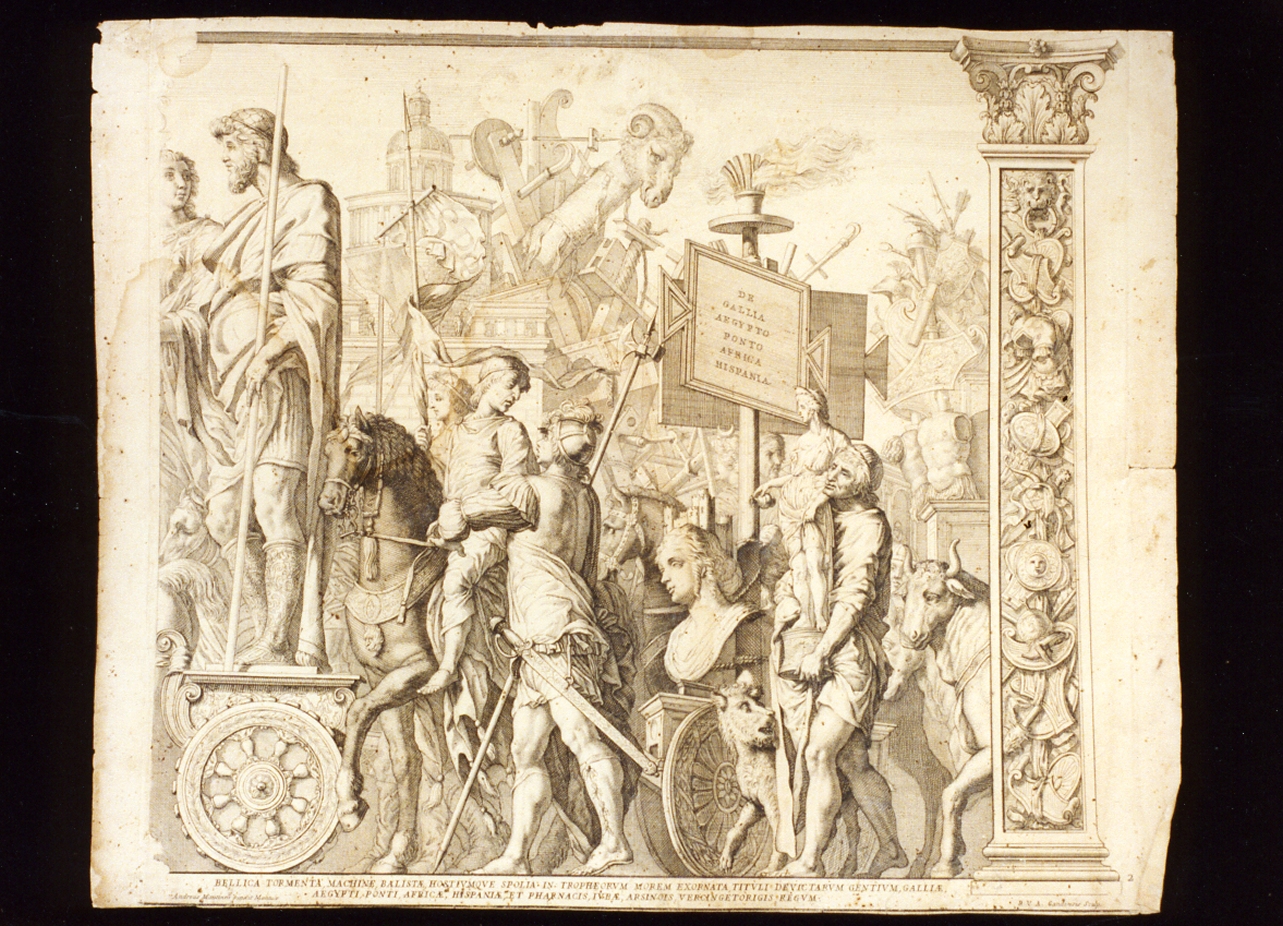 DE
GALLIA
AEGYPTO
PONTO
AFRICA
HISPANIA
BELLICA TORMENTA, MACHINE, BALISTÆ, HOSTIVMQVE SPOLIA IN TROPHEORVM MOREM EXORNATA, TITVLI DEVICTARVM GENTIVM, GALLIÆ,
AEGYPTI, PONTI, AFRICÆ, HISPANIÆ, ET PHARNACIS, IVBÆ, ARSINOIS, VERCINGETORIGIS REGVM.
Andreas Mantinea
B. V. A. Gandensis Sculp.
2